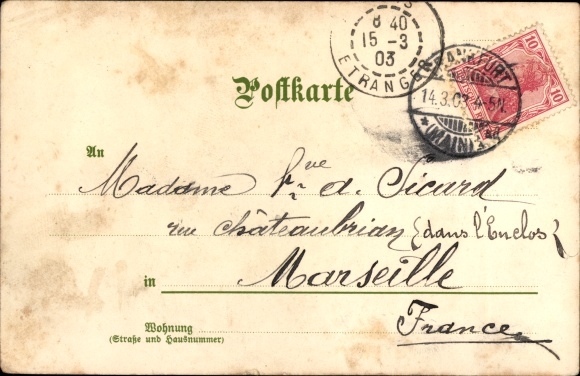 8 40
15 -3
03
ETRANGER
FRANKFURT
14.3.03 4-5N.
* (MAIN) 1
10
10
Postkarte
An
Madame Vve de Sicard
rue châteaubrian {dans l'Enclos}
in Marseille
Wohnung
(Straße und Hausnummer)
France